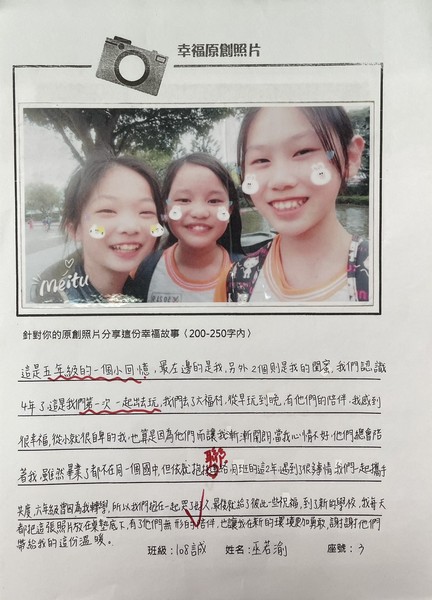 幸福原創照片
Meitu
針對你的原創照片分享這份幸福故事〈200-250字內〉
這是五年級的一個小回憶，最左邊的是我，另外2個則是我的閨蜜，我們認識
4年了這是我們第一次一起出去玩，我們去了大福村，從早玩到晚，有他們的陪伴，我感到
很幸福，從小就很自卑的我，也算是因為他們而讓我漸漸開朗，當我心情不好，他們總會陪
著我，雖然畢業了都不在同一個國中，但依就
聯
給同班的這2年遇到了很多事情我們一起攜手
度，六年級曾因為我轉學，所以我們抱在一起哭了
最後就給了彼此一些祝福，到了新的學校，我每天
都把這張照片放在桌墊底下，有了他們無形的陪伴，也讓我在新的環境更加勇敢，謝謝他們
帶給我的這份溫暖。
班級：108誠 姓名：巫若渝 座號：3